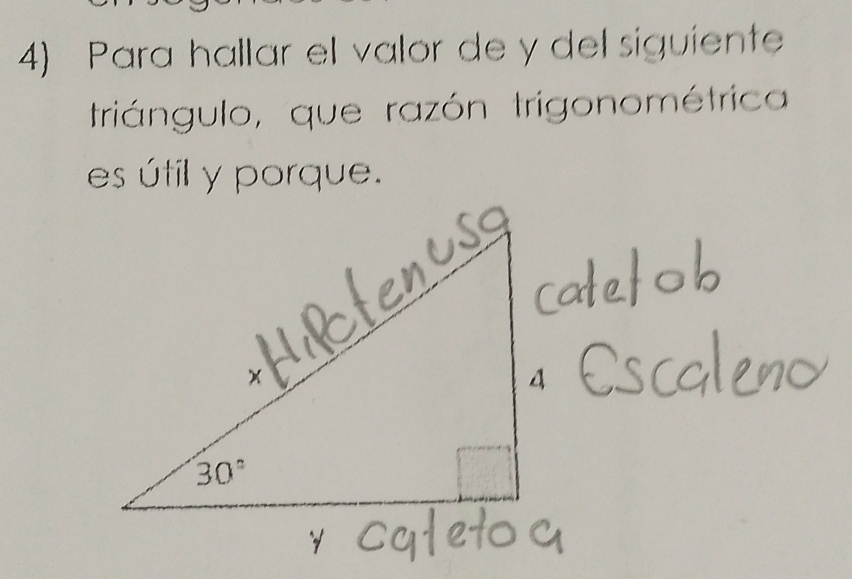 4) Para hallar el valor de y del siguiente
triángulo, que razón trigonométrica
es útil y porque.
Hipotenusa
cateto b
x
4 Escaleno
30°
y cateto a